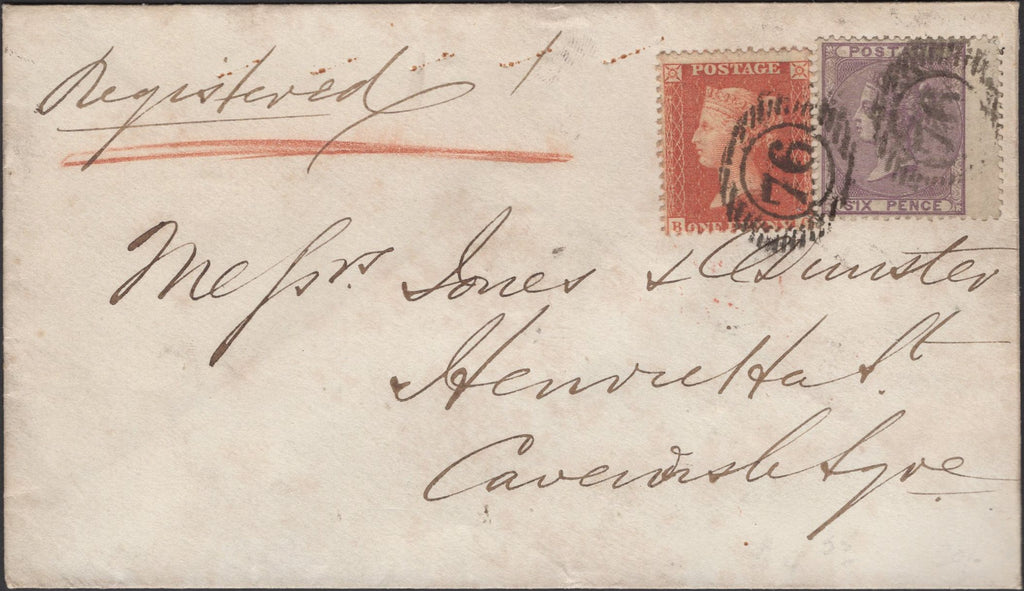 Registered
POSTAGE
POST
76
76
SIX PENCE
B ONE
Messrs. Jones & Dunster
Henrietta St.
Cavendsh Sqre